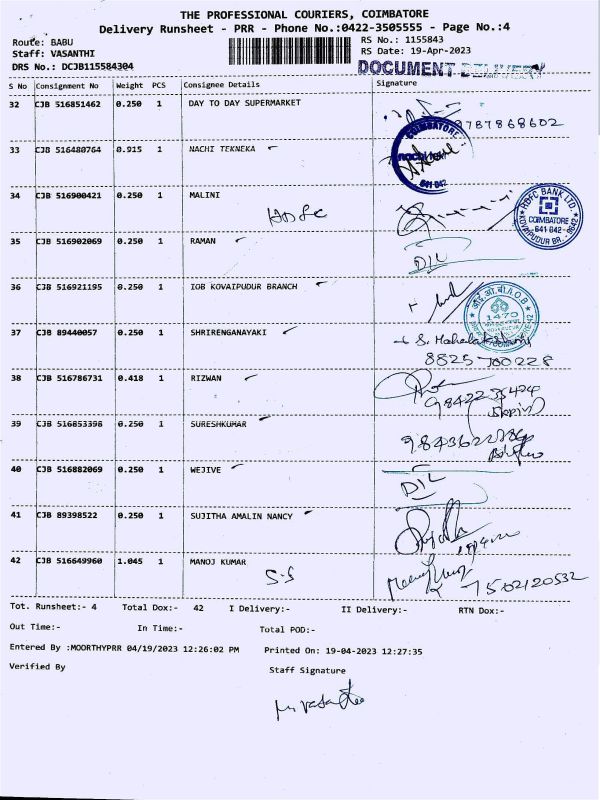 THE PROFESSIONAL COURIERS, COIMBATORE
Delivery Runsheet - PRR - Phone No.:0422-3505555 - Page No.:4
Route: BABU RS No.: 1155843
Staff: VASANTHI RS Date: 19-Apr-2023
DRS No.: DCJB115584304 DOCUMENT DELIVERY
S No Consignment No Weight PCS Consignee Details Signature
32 CJB 516851462 0.250 1 DAY TO DAY SUPERMARKET
8787868602
COIMBATORE
33 CJB 516480764 0.915 1 NACHI TEKNEKA
641 042
34 CJB 516900421 0.250 1 MALINI
HDFC
HDFC BANK LTD.
COIMBATORE
641 042
KOVAIPUDUR BR.
35 CJB 516902069 0.250 1 RAMAN
D/L
36 CJB 516921195 0.250 1 IOB KOVAIPUDUR BRANCH
1470
37 CJB 89440057 0.250 1 SHRIRENGANAYAKI
S. Mahalakshmi
8825700228
38 CJB 516786731 0.418 1 RIZWAN
39 CJB 516853398 0.250 1 SURESHKUMAR
40 CJB 516882069 0.250 1 WEJIVE
D/L
41 CJB 89398522 0.250 1 SUJITHA AMALIN NANCY
42 CJB 516649960 1.045 1 MANOJ KUMAR
S.S
7502120532
Tot. Runsheet:- 4 Total Dox:- 42 I Delivery:- II Delivery:- RTN Dox:-
Out Time:- In Time:- Total POD:-
Entered By :MOORTHYPRR 04/19/2023 12:26:02 PM Printed On: 19-04-2023 12:27:35
Verified By Staff Signature